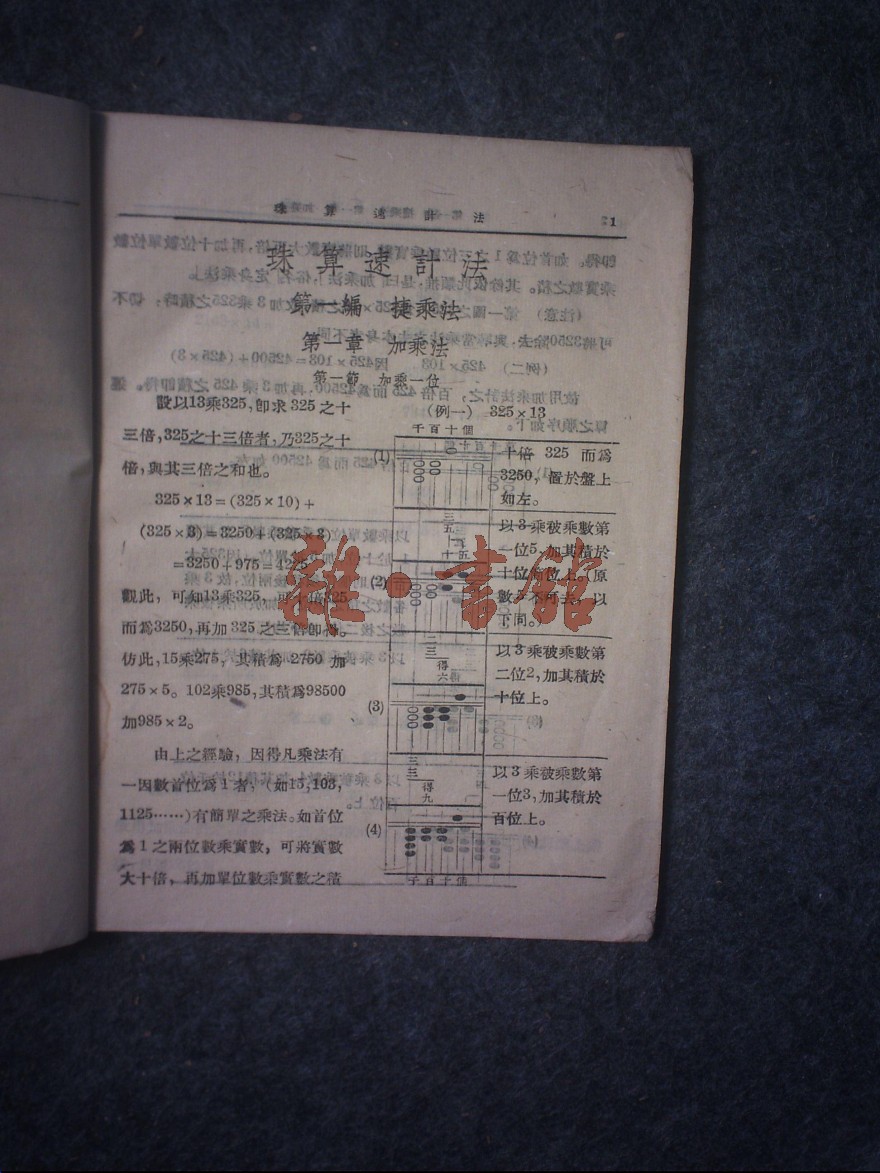 珠算速計法 1
珠算速計法
第一編 捷乘法
第一章 加乘法
第一節 加乘一位
設以13乘325,卽求325之十
三倍,325之十三倍者,乃325之十
倍,與其三倍之和也。
325×13=(325×10)+
(325×3)=3250+(325×3)
=3250+975=4225
觀此,可知13乘325,可十倍325
而爲3250,再加325之三倍卽得。
仿此,15乘275,其積爲2750加
275×5。102乘985,其積爲98500
加985×2。
由上之經驗,因得凡乘法有
一因數首位爲1者,(如15,103,
1125……)有簡單之乘法。如首位
爲1之兩位數乘實數,可將實數
大十倍,再加單位數乘實數之積
(例一) 325×13
千百十個
(1)
十倍325而爲
3250,置於盤上
如左。
三五
一十五
(2)
以3乘被乘數第
一位5,加其積於
十位兩位上。(原
數5不可去,以
下同。)
二三
得六
(3)
以3乘被乘數第
二位2,加其積於
十位上。
三三
得九
(4)
以3乘被乘數第
一位3,加其積於
百位上。
千百十個
雜·書館